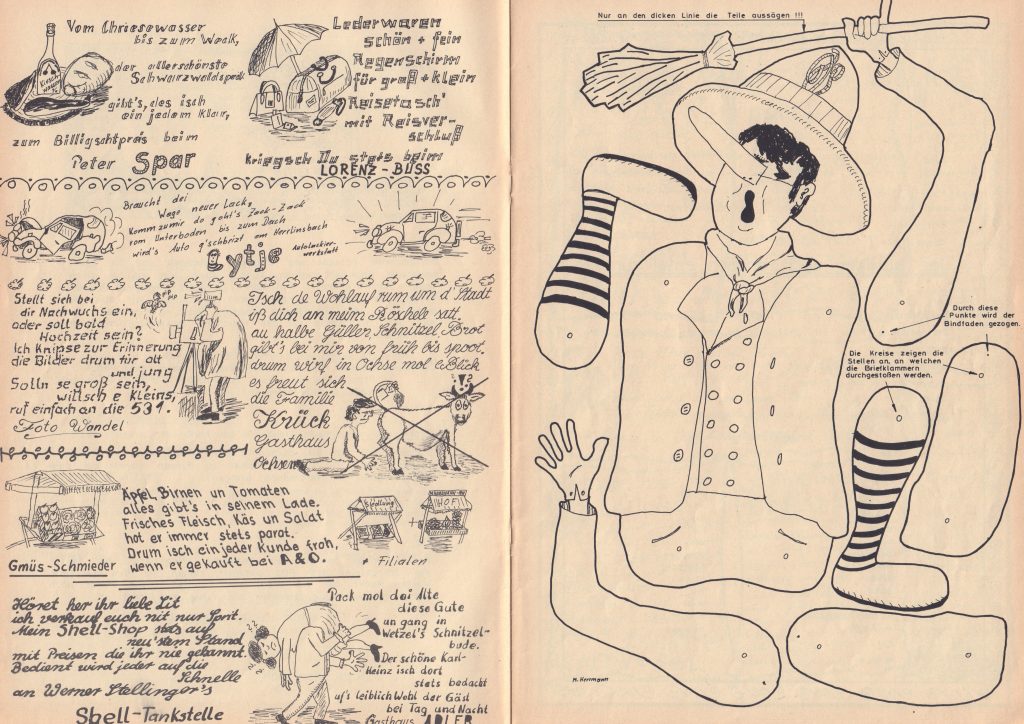 Vom Chriesewasser
bis zum Weck,
der allerschönste
Schwarzwaldspeck
gibt's, des isch
ein jedem klar,
zum Billigschtpreis beim
Peter Spar
Lederwaren
schön + fein
Regenschirm
für groß + klein
Reisetasch'
mit Reisver-
schluß
kriegsch Du stets beim
LORENZ - BUSS
Braucht dei
Wage neuer Lack,
Komm zu mir do goht's Zack-Zack
vom Unterboden bis zum Dach
wird's Auto g'schbrizt am Herrlinsbach
Lytje
Autolackier-
werkstatt
Stellt sich bei
dir Nachwuchs ein,
oder soll bald
Hochzeit sein?
Ich knipse zur Erinnerung
die Bilder drum für alt
und jung
Solln se groß sein,
willsch e kleins,
ruf einfach an die 531.
Foto Wandel
Isch de Wohlauf rum um d' Stadt
iß dich an meim Röschele satt.
au halbe Güller, Schnitzel, Brot
gibt's bei mir von früh bis spoot.
drum wirf in Ochse mol e Blick
es freut sich
die Familie
Krück
Gasthaus
Ochsen
Äpfel, Birnen un Tomaten
alles gibt's in seinem Lade.
Frisches Fleisch, Käs un Salat
hot er immer stets parat.
Drum isch ein jeder Kunde froh,
wenn er gekauft bei A&O.
Gmüs-Schmieder
+ Filialen
Höret her ihr liebe Lit
ich verkauf euch nit nur Sprit.
Mein Shell-Shop stets auf
neu'stem Stand
mit Preisen die ihr nie gekannt.
Bedient wird jeder auf die
Schnelle
an Werner Stellinger's
Shell-Tankstelle
Pack mol dei Alte
diese Gute
un gang in
Wetzel's Schnitzel-
bude.
Der schöne Karl-
Heinz isch dort
stets bedacht
uf's leiblich Wohl der Gäst
bei Tag und Nacht
Gasthaus ADLER
Nur an den dicken Linie die Teile aussägen !!!
Durch diese
Punkte wird der
Bindfaden gezogen.
Die Kreise zeigen die
Stellen an, an welchen
die Briefklammern
durchgestoßen werden.
M. Herrmann